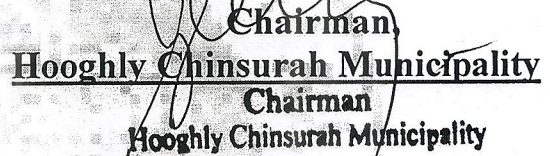 Chairman,
Hooghly Chinsurah Municipality
Chairman
Hooghly Chinsurah Municipality